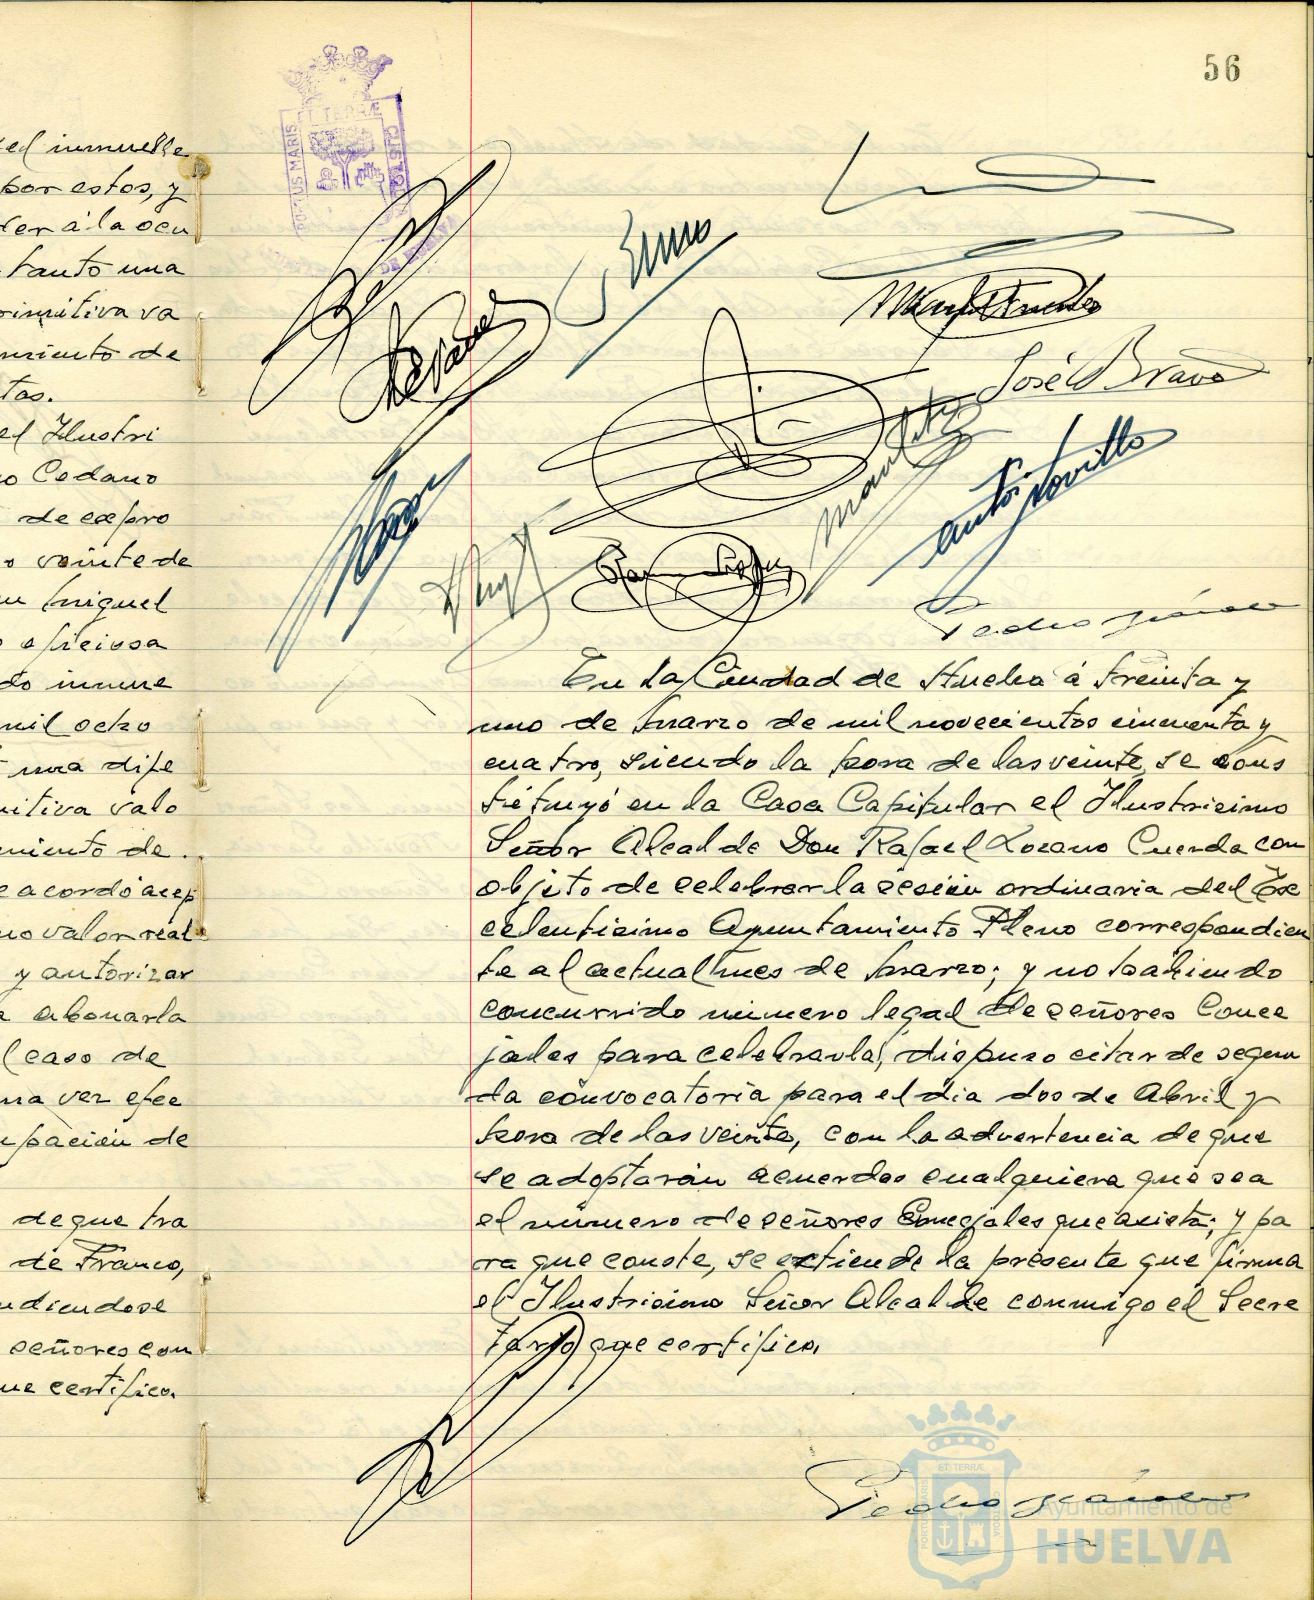 56
el inmueble
por estos, y
der á la ocu
tanto una
rimitiva va
amiento de
tas.
el Ilustri
o Cedano
de expro
o veinte de
n Miguel
o oficiosa
do inmue
mil ocho
una dife
mitiva valo
amiento de
e acordó acep
mo valor real
y autorizar
a abonarla
l caso de
na vez efec
upación de
de que tra
de Franco,
ndiendose
señores con
ue certifico.
PORTUS MARIS ET TERRÆ CUSTODIA
DE HUELVA
José Bravo
Pedro
En la Ciudad de Huelva á treinta y
uno de marzo de mil novecientos cincuenta y
cuatro, siendo la hora de las veinte, se cons
tituyó en la Casa Capitular el Ilustrisimo
Señor Alcalde Don Rafael Lozano Cuerda con
objeto de celebrar la sesión ordinaria del Ex
celentisimo Ayuntamiento Pleno correspondien
te al actual mes de marzo; y no habiendo
concurrido número legal de señores Conce
jales para celebrarla, dispuso citar de segun
da convocatoria para el día dos de Abril y
hora de las veinte, con la advertencia de que
se adoptarán acuerdos cualquiera que sea
el número de señores Concejales que asista; y pa
ra que conste, se extiende la presente que firma
el Ilustrisimo Señor Alcalde conmigo el Secre
tario que certifico.
Pedro
PORTUS MARIS ET TERRÆ CUSTODIA
Ayuntamiento de
HUELVA